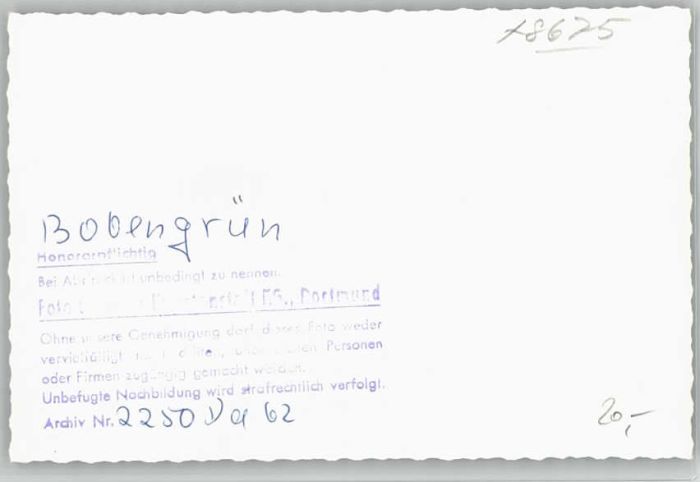 x8675
Bobengrün
Honorarpflichtig
Bei Abdruck ist unbedingt zu nennen:
Foto KG., Dortmund
Ohne unsere Genehmigung darf dieses Foto weder
vervielfältigt noch dritten, unbefugten Personen
oder Firmen zugängig gemacht werden.
Unbefugte Nachbildung wird strafrechtlich verfolgt.
Archiv Nr. 2250 62
20,-